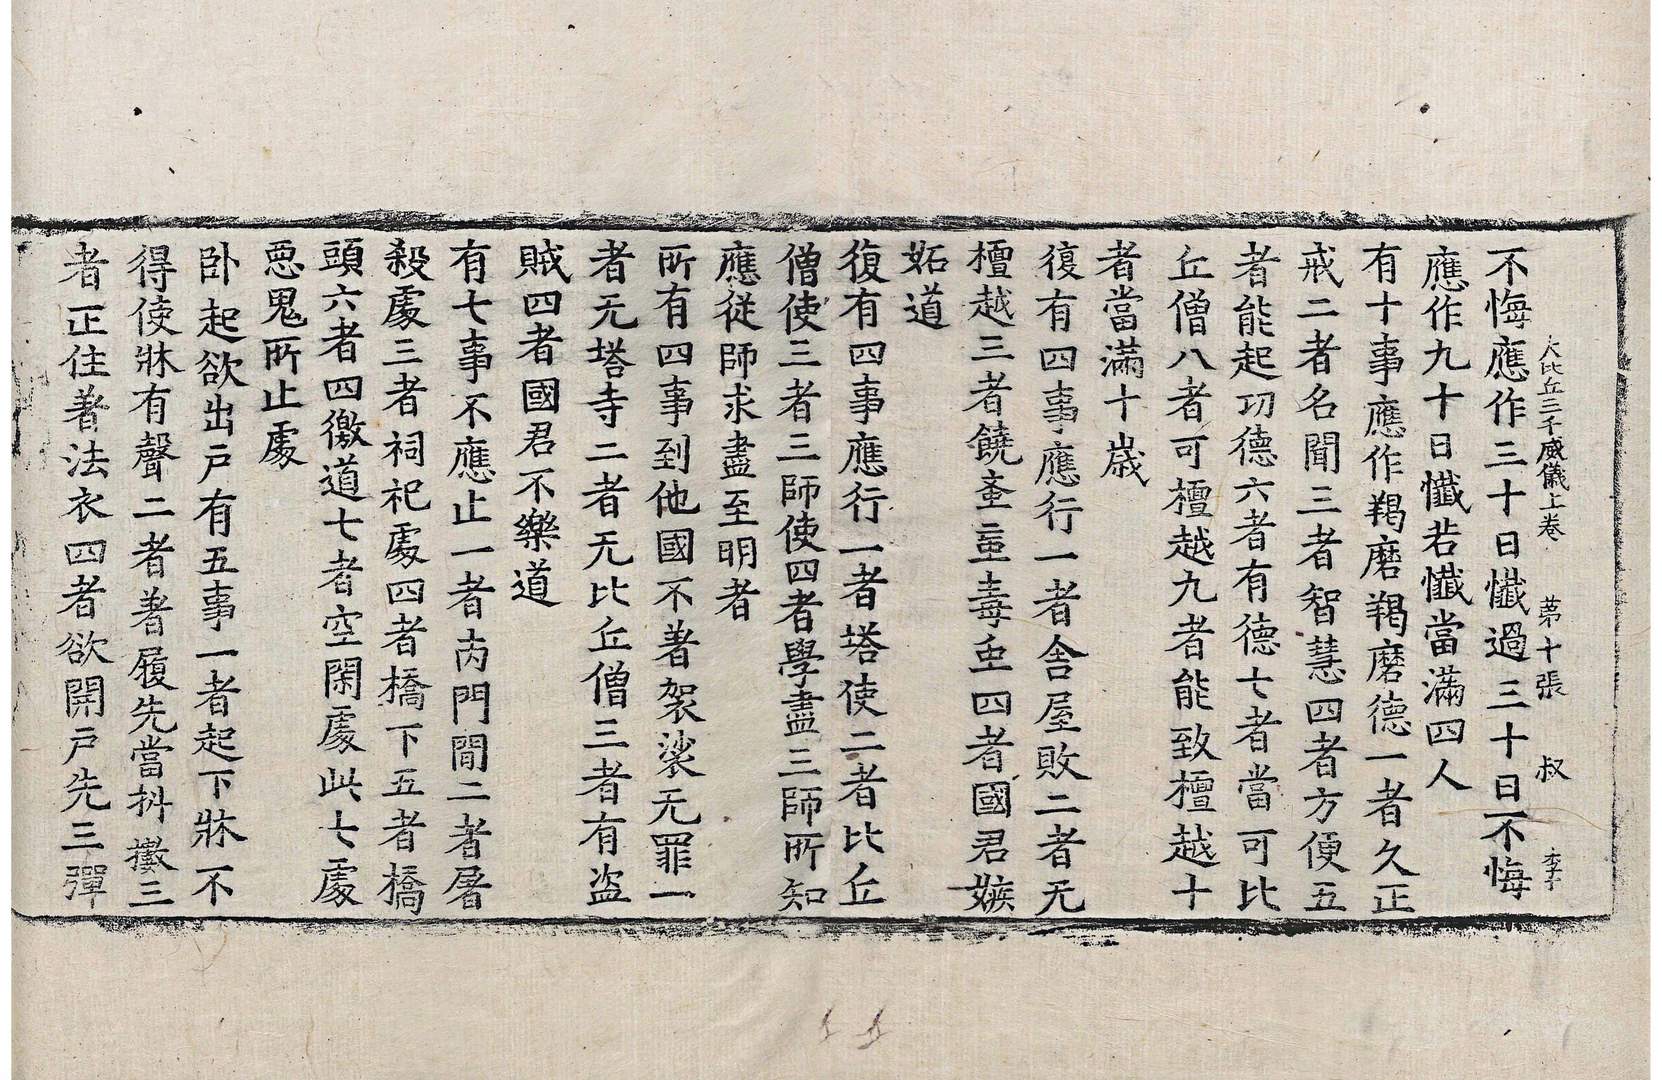 大比丘三千威儀上卷 苐十張 叔 李子
不悔應作三十日懺過三十日不悔
應作九十日懺若懺當滿四人
有十事應作羯磨羯磨德一者久正
戒二者名聞三者智慧四者方便五
者能起㓛德六者有德七者當可比
丘僧八者可檀越九者能致檀越十
者當滿十歲
復有四事應行一者舍屋敗二者无
檀越三者饒蚉䖟毒虫四者國君嫉
妬道
復有四事應行一者塔使二者比丘
僧使三者三師使四者學盡三師所知
應從師求盡至明者
所有四事到他國不著袈裟无罪一
者无塔寺二者无比丘僧三者有盗
賊四者國君不樂道
有七事不應止一者丙門間二者屠
殺處三者祠祀處四者橋下五者橋
頭六者四徼道七者空閑處此七處
惡鬼所止處
卧起欲出戶有五事一者起下牀不
得使牀有聲二者著履先當抖擻三
者正住著法衣四者欲開戶先三彈